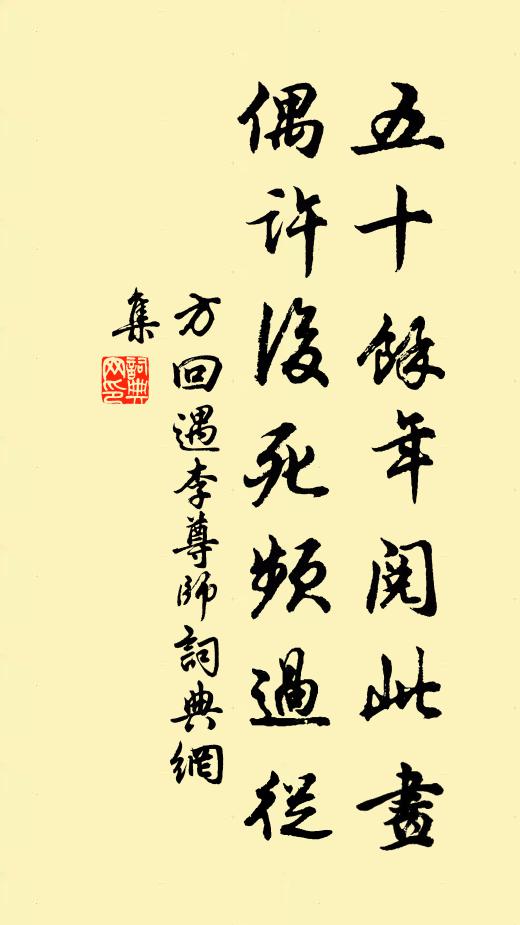 五十餘年閱此畫
偶許後死頻過從
方回遇李尊師詞典網
集
詞典
网印